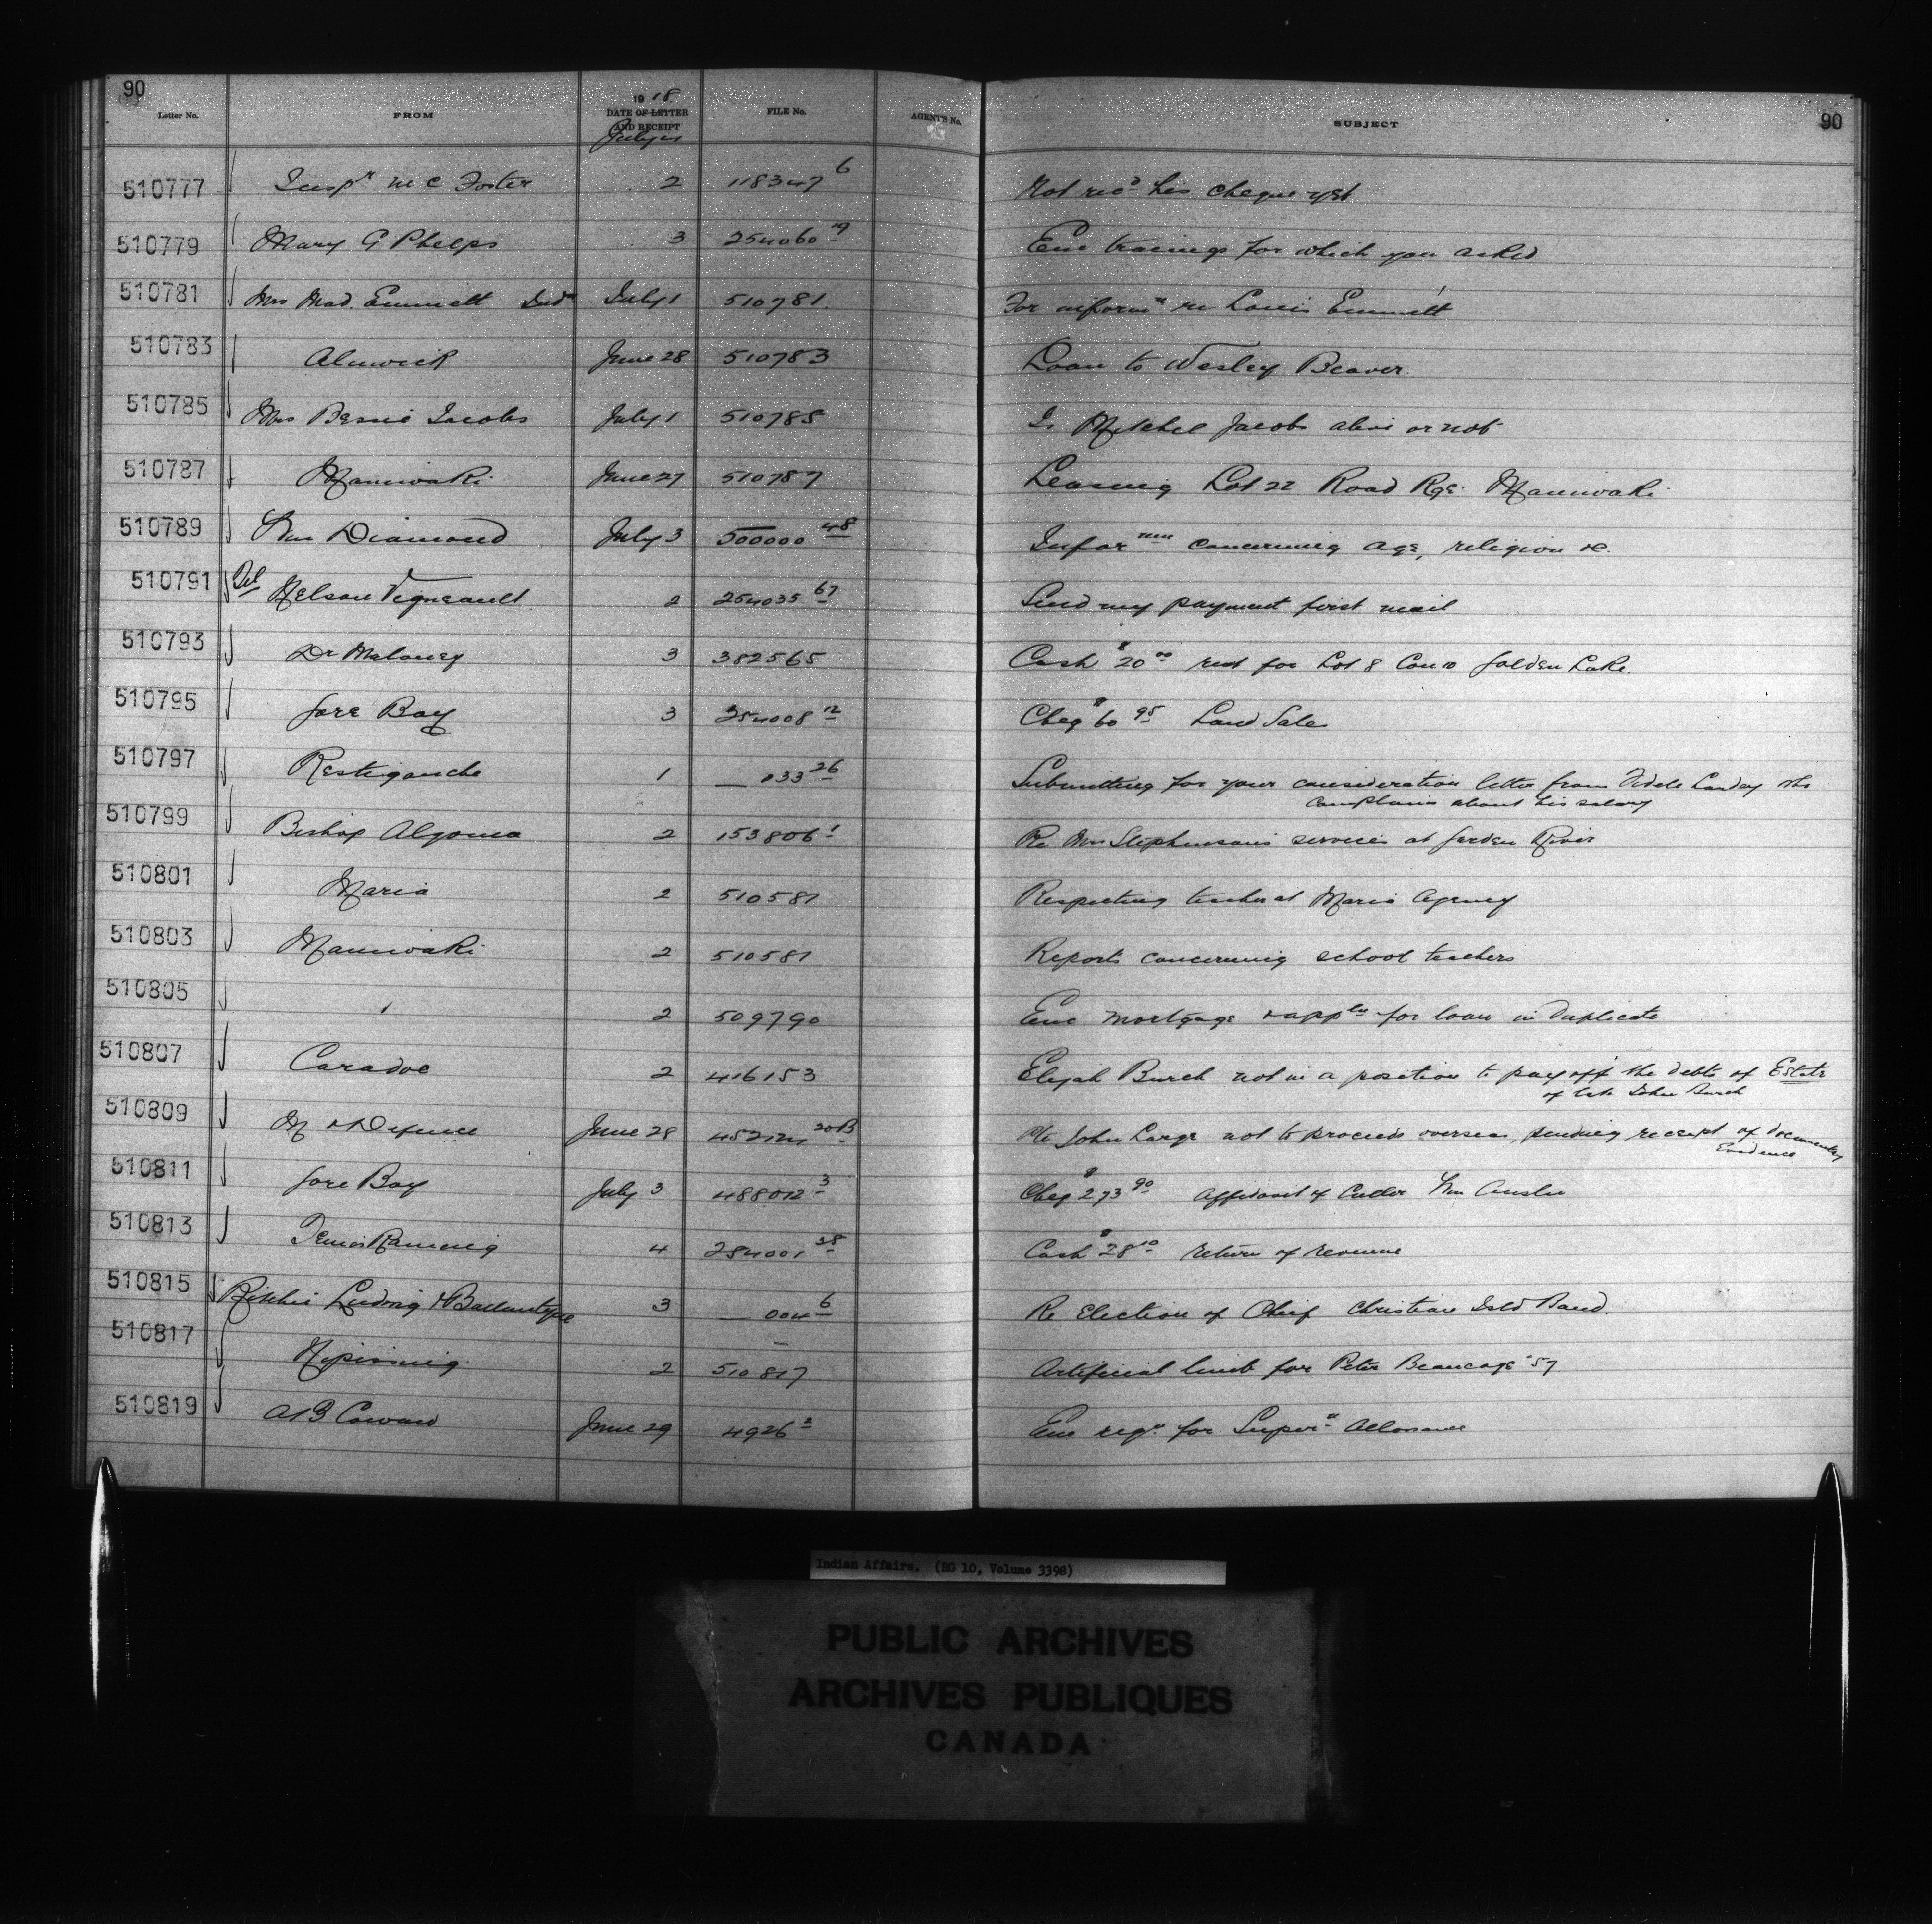 90
Letter No. FROM 1918 DATE OF LETTER AND RECEIPT FILE No. AGENT'S No. SUBJECT 90
July
510777 Inspr M C Foster 2 118347 6 Not recd his cheque yet
510779 Mary G Phelps 3 254060 19 Enc tracings for which you asked
510781 Mrs Mad. Emmett July 1 510781 For informn re Louis Emmett
510783 Alnwick June 28 510783 Loan to Wesley Beaver.
510785 Mrs Bessie Jacobs July 1 510785 Is Mitchel Jacobs alive or not
510787 Maniwaki June 27 510787 Leasing Lot 22 Road Rge. Maniwaki
510789 Wm Diamond July 3 500000 48 Infor concerning age, religion &c.
510791 Tel Nelson Vigneault 2 254035 67 Send my payment first mail
510793 Dr Maloney 3 382565 Cash $20 00 rent for Lot 8 Con 10 Golden Lake.
510795 Gore Bay 3 254008 12 Cheq $60 95 Land Sale
510797 Restigouche 1 — 033 26 Submitting for your consideration letter from Fidele who
complains about his salary
510799 Bishop Algoma 2 153806 1 Re Mrs Stephenson's services at Garden River
510801 Maria 2 510581 Respecting teacher at Maria Agency
510803 Maniwaki 2 510581 Reports concerning school teachers
510805 " 2 509790 Enc mortgage & appln for loan in duplicate
510807 Caradoc 2 416153 Elijah Burch not in a position to pay off the debts of Estate
of late John Burch
510809 M & Defence June 28 20B Pte John Large not to proceed overseas, pending receipt of documentary
Evidence
510811 Gore Bay July 3 488012 3 Cheq $273 90 Affidavit of Culler Wm
510813 4 254001 38 Cash $28 10 return of revenue
510815 Ritchie Ludwig & Ballantyne 3 — 004 6 Re Election of Chief Christian Isld Band.
510817 Nipissing 2 510817 Artificial limb for Peter Beaucage "57
510819 A B Cowan June 29 4926 2 Enc for Super Allowance
Indian Affairs. (RG 10, Volume 3398)
PUBLIC ARCHIVES
ARCHIVES PUBLIQUES
CANADA